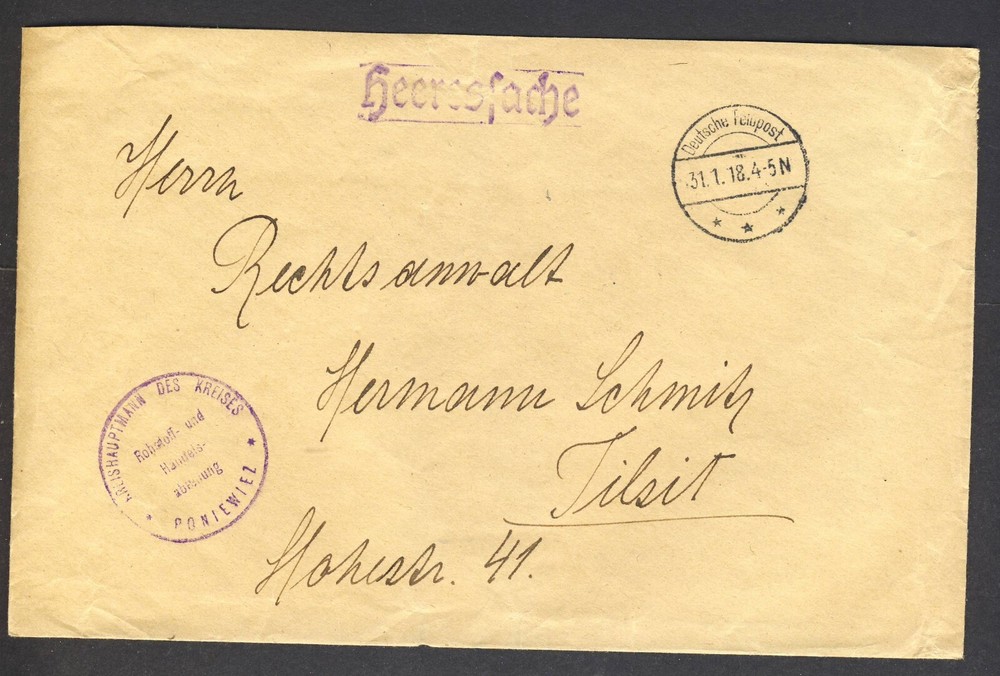 Heeressache
Deutsche Feldpost
31.1.18.4-5N
Herrn
Rechtsanwalt
Hermann Schmitz
Tilsit
Hohestr. 41.
KREISHAUPTMANN DES KREISES
Rohstoff- und
Handels-
abteilung
PONIEWIEZ